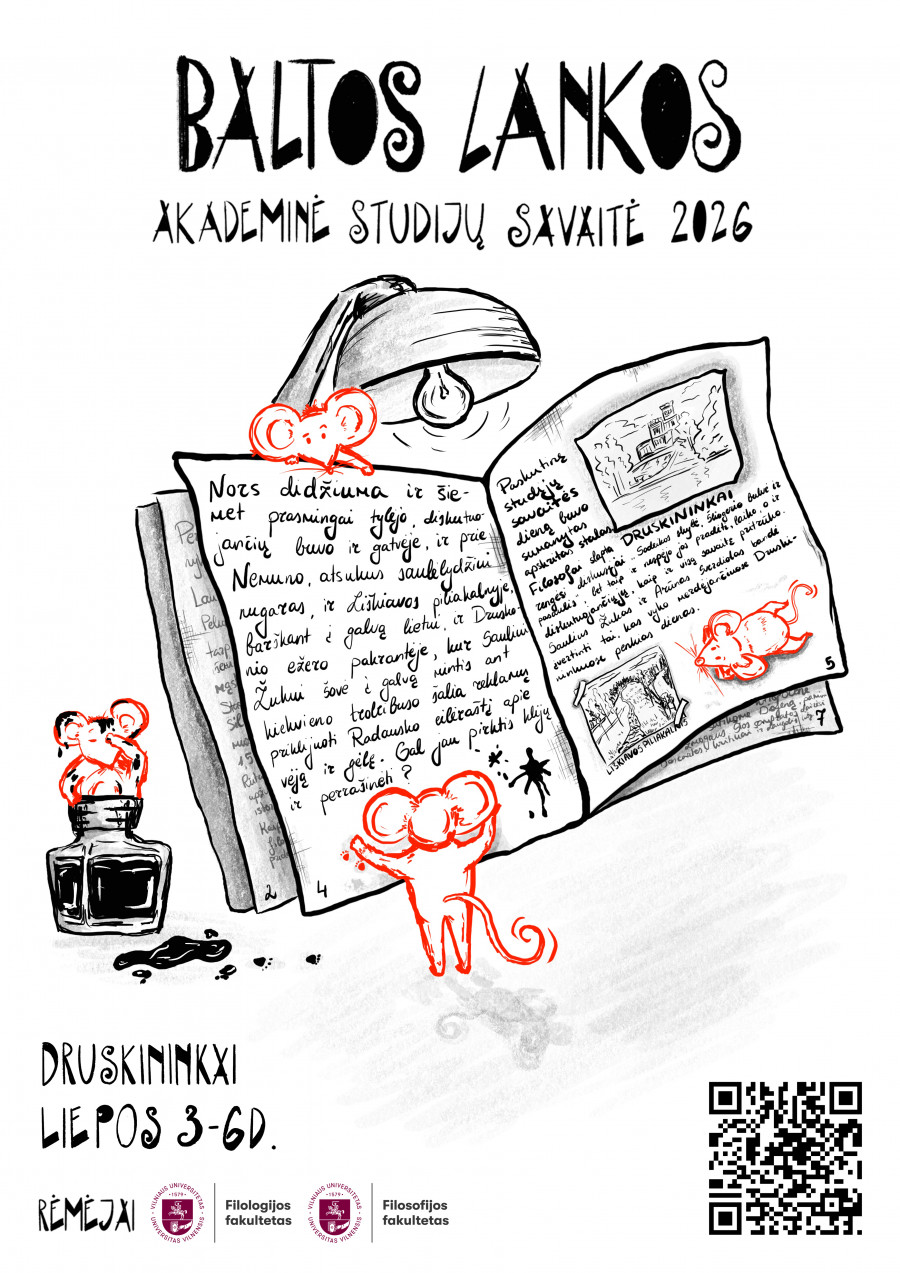 BALTOS LANKOS
AKADEMINĖ STUDIJŲ SAVAITĖ 2026
Nors didžiuma ir šie-
met prasmingai tylėjo, diskutuo-
jančių buvo ir gatvėje, ir prie
Nemuno, atsukus saulėlydžiui
nugaras, ir Liškiavos piliakalnyje,
barškant į galvą lietui, ir Drusko-
nio ežero pakrantėje, kur Sauliui
Žukui šovė į galvą mintis ant
kiekvieno troleibuso šalia reklamų
priklijuoti Radausko eilėraštį apie
vėją ir gėlę. Gal jau pirktis klijų
ir perrašinėti?
2
4
Paskutinę
studijų
savaitės
dieną buvo
sumanytas
apskritas stalas.
DRUSKININKAI
Filosofai slapta
rengėsi diskusijai
Saulius Žukas ir Arūnas Sverdiolas bandė
įvertinti tai kas vyko nerdėjančiuose Druski-
ninkuose penkias dienas.
5
LIŠKIAVOS PILIAKALNIS
7
DRUSKININKAI
LIEPOS 3-6D.
RĖMĖJAI
VILNIAUS UNIVERSITETAS
1579
UNIVERSITAS VILNENSIS
Filologijos
fakultetas
VILNIAUS UNIVERSITETAS
1579
UNIVERSITAS VILNENSIS
Filosofijos
fakultetas